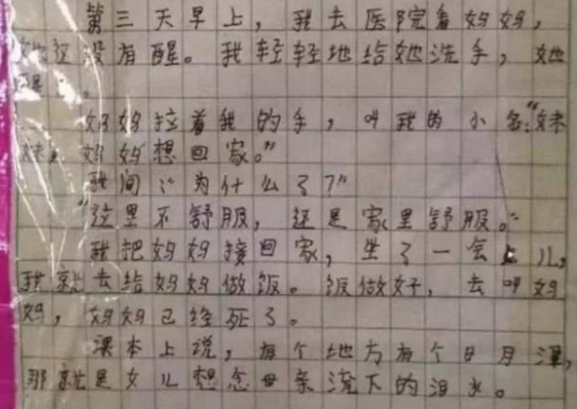 第三天早上，我去医院看妈妈，
她还没有醒。我轻轻地给她洗手，她
醒了。
妈妈拉着我的手，叫我的小名：“妹
妹，妈妈想回家。”
我问：“为什么了？”
“这里不舒服，还是家里舒服。”
我把妈妈接回家，坐了一会儿，
我就去给妈妈做饭。饭做好，去叫妈
妈，妈妈已经死了。
课本上说，有个地方有个日月潭，
那就是女儿想念母亲流下的泪水。